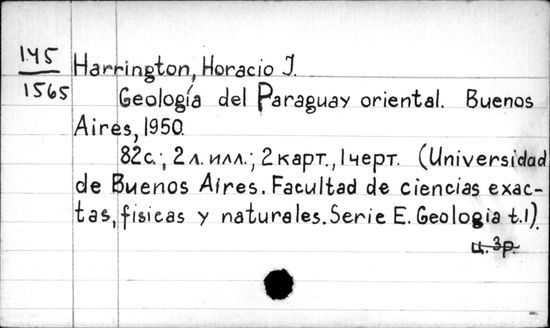 145
1565
Harrington, Horacio J.
Geología del Paraguay oriental. Buenos
Aires, 1950.
82с.; 2 л. илл.; 2 карт., 1 черт. (Universidad
de Buenos Aires. Facultad de ciencias exac-
tas, fisicas y naturales. Serie E. Geologia t.1).
ц. 3р.